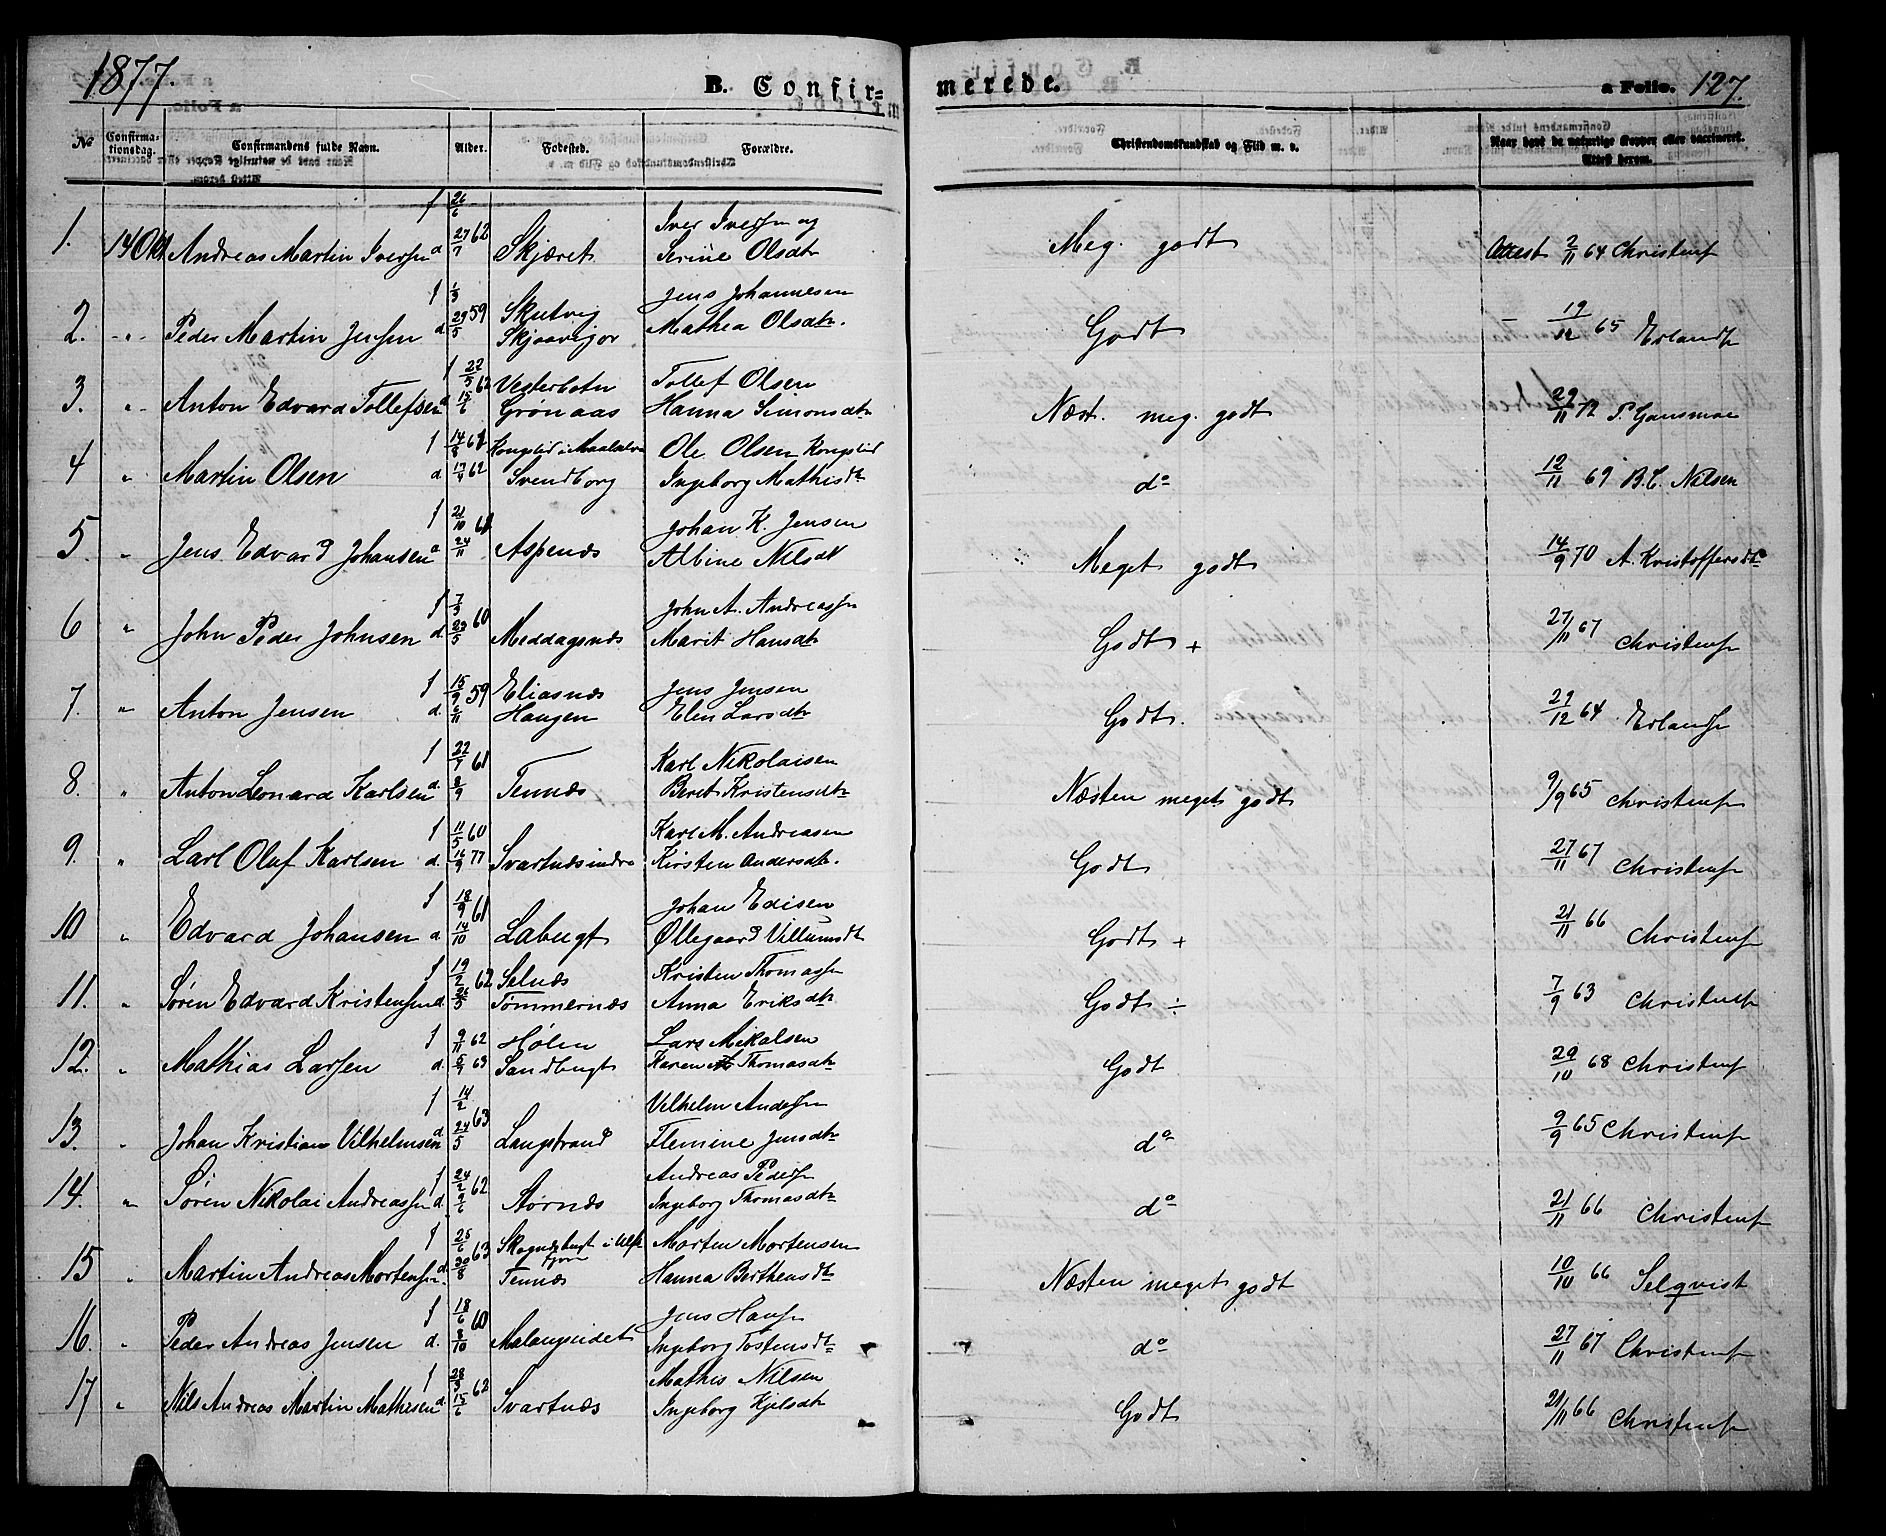 1877.
B. Confir=
merede.
a Folio. 127.
№ Confirmationsdag. Confirmandens fulde Navn. Alder. Fødested. Forældre. Christendomskundskab og Flid m. v. Naar havt de naturlige Kopper eller vaccineret. Attest herom.
f 26/6 Iver Iversen og
1. 14 Okt Andreas Martin Iversen d 27/7 62 Skjæret Serine Olsdtr Meg. godt Attest 2/11 64 Christensen
f 1/3 59 Skutvig Jens Johannesen
2. " Peder Martin Jensen d. 29/5 Skjaavigor Mathea Olsdtr. Godt – 19/12 65 Erlandsen
f 22/5 62 Vesterbotn Tollef Olsen
3. " Anton Edvard Tollefsen d 15/6 Grönaas Hanna Simonsdtr Næst. meg. godt 29/11 72 P. Gausmoe
f 14/8 61 Kongslid i Maalselv Ole Olsen Kongslid
4 " Martin Olsen d. 17/4 62 Svendborg Ingeborg Mathisdtr do 12/11 69 B.C. Nilsen
f 21/10 61 Johan K. Jensen
5. " Jens Edvard Johansen d 24/11 Aspenæs Albine Nilsdtr Meget godt 14/9 70 A. Kristoffersdtr
f 7/3 60 John A. Andreassen
6 " John Peder Johnsen d. 29/5 Meddagsnæs Marit Hansdtr Godt + 27/11 67 Christensen
f 15/9 59 Eliasnæs Jens Jensen
7. " Anton Jensen d. 6/11 Haugen Elen Larsdtr Godt. 29/12 64 Erlandsen
f 22/7 61 Karl Nikolaisen
8. " Anton Leonard Karlsen d. 8/9 Tennæs Beret Kristensdtr Næsten meget godt 9/9 65 Christensen
f 11/5 60 Karl M. Andreasen
9. " Carl Oluf Karlsen d. 16/9 77 Svartnæs indre Kirsten Andersdtr. Godt 27/11 67 Christensen
f 18/9 61 Johan Edisen
10 " Edvard Johansen d 14/10 Labugt Øllegaard Villumsdtr Godt + 21/11 66 Christensen
f 19/2 62 Selnæs Kristen Thomassen
11. " Søren Edvard Kristensen d. 26/5 Tømmernæs Anna Eriksdtr Godt ÷ 7/9 63 Christensen
f 9/11 62 Hølen Lars Mikalsen
12. " Mathias Larsen d. 63 Sandbugt Karen Thomasdtr Godt 29/10 68 Christensen
f 14/2 63 Vilhelm Andersen
13. " Johan Kristian Vilhelmsen d 24/5 Langstrand Flemine Jensdtr do 9/9 65 Christensen
f 24/2 62 Andreas Pedersen
14. " Søren Nikolai Andreassen d. 9/6 Størnæs Ingeborg Thomasdtr do 21/11 66 Christensen
f 25/6 63 Skognesbugt i Ulfsfjorn Morten Mortensen
15 " Martin Andreas Mortensen d. 30/8 Tennæs Hanna Berthensdtr Næsten meget godt 10/10 66 Selqvist
f 18/6 60 Jens Hansen
16. " Peder Andreas Jensen d. 8/10 Malangseidet Ingeborg Tostensdtr do 27/11 67 Christensen
f 28/3 62 Mathis Nilsen
17 " Nils Andreas Martin Mathisen d. 15/6 Svartnæs Ingeborg Kjelsdtr Godt 21/11 66 Christensen